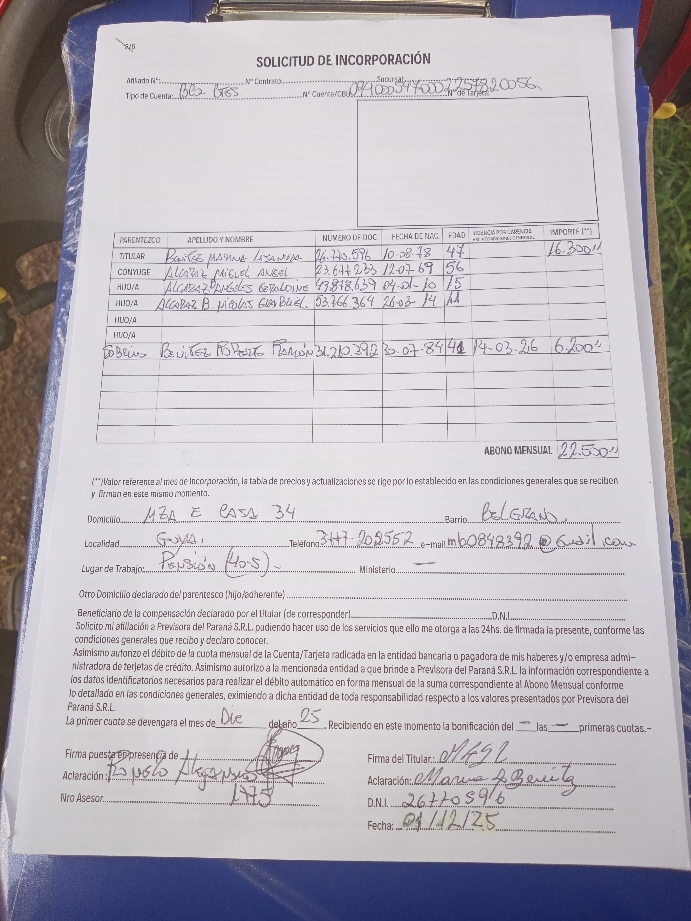 SOLICITUD DE INCORPORACIÓN
Afiliado N°: N° Contrato: Sucursal:
Tipo de Cuenta: N° Cuenta/CBU N° de Tarjeta:
PARENTEZCO APELLIDO Y NOMBRE NUMERO DE DOC. FECHA DE NAC. EDAD VIGENCIA POR CARENCIA IMPORTE (**)
TITULAR BENITEZ MARINA LISANDRA 26.770.596 10-08-78 47 16.300
CONYUGE ALCARAZ MIGUEL ANGEL 23.677.233 12-07-69 56
HIJO/A ALCARAZ ANGELES GERALDINE 49.878.639 04-01-10 15
HIJO/A ALCARAZ B. NICOLAS GRABRIEL. 53.766.364 26-03-14 11
HIJO/A
HIJO/A
SOBRINO BENITEZ ROBERTO RAMÓN 31.210.392 30-07-84 41 14-03-26 6.200
ABONO MENSUAL 22.500
(**)Valor referente al mes de Incorporación, la tabla de precios y actualizaciones se rige por lo establecido en las condiciones generales que se reciben
y firman en este mismo momento.
Domicilio MZA E CASA 34 Barrio: BELGRANO
Localidad GOYA. Teléfono 3777-202552 e-mail mb0848292@Gmail.com
Lugar de Trabajo: PENSIÓN (40-5) - Ministerio —
Otro Domicilio declarado del parentesco (hijo/adherente)
Beneficiario de la compensación declarado por el titular (de corresponder) D.N.I.
Solicito mi afiliación a Previsora del Paraná S.R.L. pudiendo hacer uso de los servicios que ello me otorga a las 24hs. de firmada la presente, conforme las
condiciones generales que recibo y declaro conocer.
Asimismo autorizo el débito de la cuota mensual de la Cuenta/Tarjeta radicada en la entidad bancaria o pagadora de mis haberes y/o empresa admi-
nistradora de terjetas de crédito. Asimismo autorizo a la mencionada entidad a que brinde a Previsora del Paraná S.R.L. la información correspondiente a
los datos identificatorios necesarios para realizar el débito automático en forma mensual de la suma correspondiente al Abono Mensual conforme
lo detallado en las condiciones generales, eximiendo a dicha entidad de toda responsabilidad respecto a los valores presentados por Previsora del
Paraná S.R.L.
La primer cuota se devengara el mes de Dic del año 25. Recibiendo en este momento la bonificación del — las — primeras cuotas.-
Firma puesta en presencia de Firma del Titular:
Aclaración: Romero Alejandro Aclaración: Marina L Benitez
Nro Asesor 1775 D.N.I. 26770596
Fecha: 01/12/25